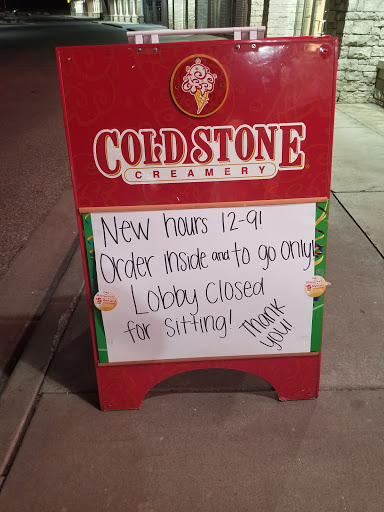 COLD STONE
CREAMERY
New hours 12-9!
Order inside and to go only!
Lobby Closed
for sitting! Thank
you!